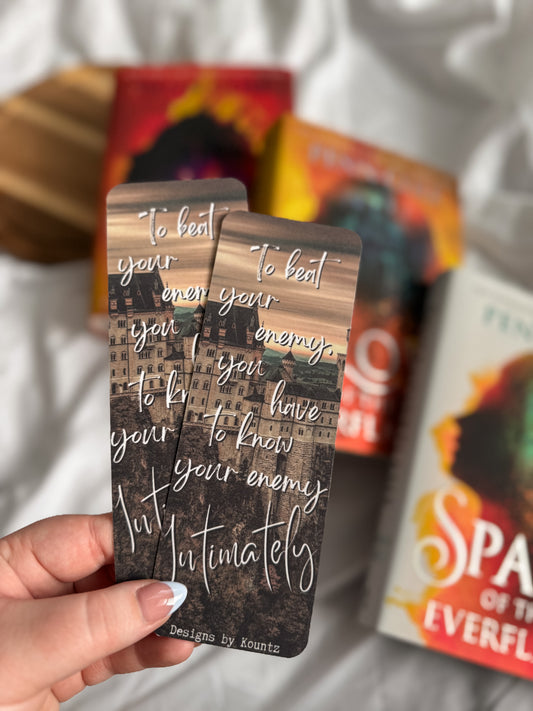 To beat
your
enem
you
To kn
your
Int
To beat
your
enemy,
you
have
to know
your enemy
Intimately
Designs by Kountz
PEN
SPA
OF TH
EVERFL